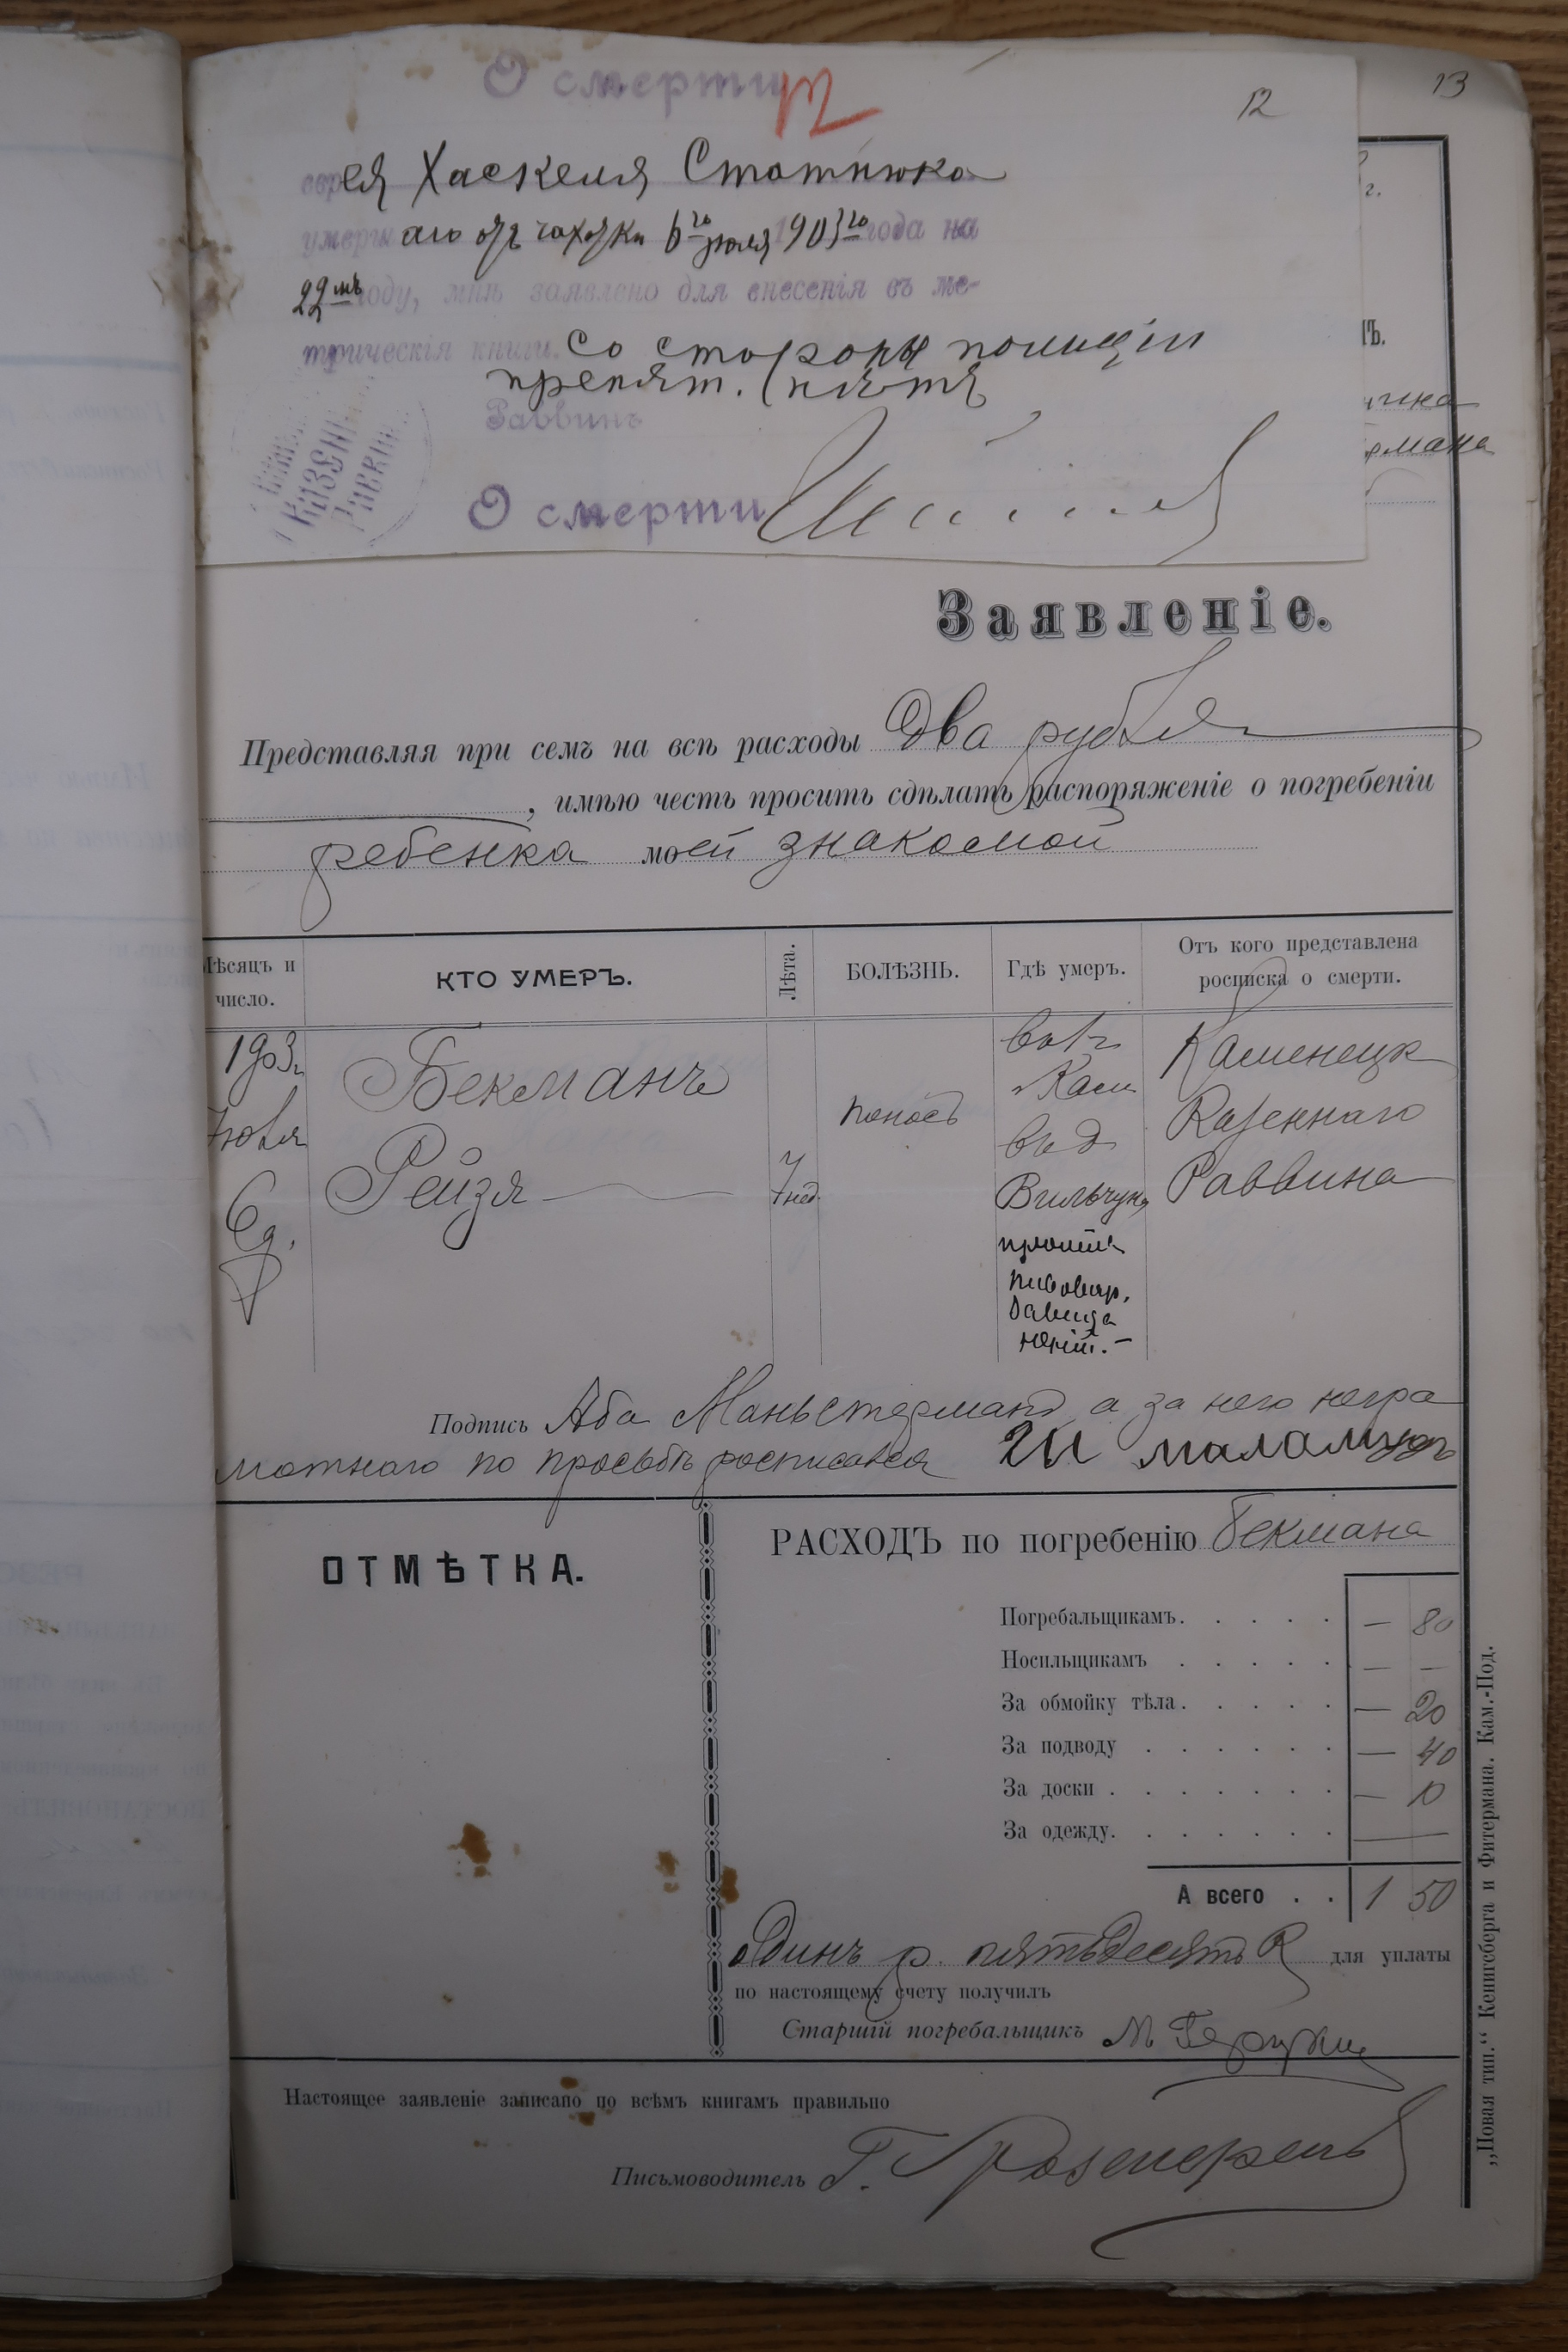 О смерти
12
12
13
еврея Хаскеля Статнюка
умершаго отъ чахотки 6го Іюля 1903го года на
22мъ году, мнѣ заявлено для внесенія въ ме-
трическія книги. Со стороны полиціи
препят. нѣтъ
Раввинъ
О смерти
Заявленіе.
Представляя при семъ на всѣ расходы Два рубля
, имѣю честь просить сдѣлать распоряженіе о погребеніи
ребенка моей знакомой
Мѣсяцъ и число.
КТО УМЕРЪ.
Лѣта.
БОЛѢЗНЬ.
Гдѣ умеръ.
Отъ кого представлена росписка о смерти.
1903г.
Іюля
6д.
Бекманъ
Рейзя
7 нед
поносъ
въ г.
Кам
въ д
Каменецк
Казеннаго
Раввина
Подпись Аба Маньстерманъ а за него негра
мотнаго по просьбѣ росписался
ОТМѢТКА.
РАСХОДЪ по погребенію Бекмана
Погребальщикамъ. — 80
Носильщикамъ — —
За обмойку тѣла. — 20
За подводу — 40
За доски — 10
За одежду. —
А всего 1 50
Одинъ р. пятьдесятъ К для уплаты
по настоящему счету получилъ
Старшій погребальщикъ
Настоящее заявленіе записано по всѣмъ книгамъ правильно
Письмоводитель
„Новая тип.“ Кенигсберга и Фитермана. Кам.-Под.